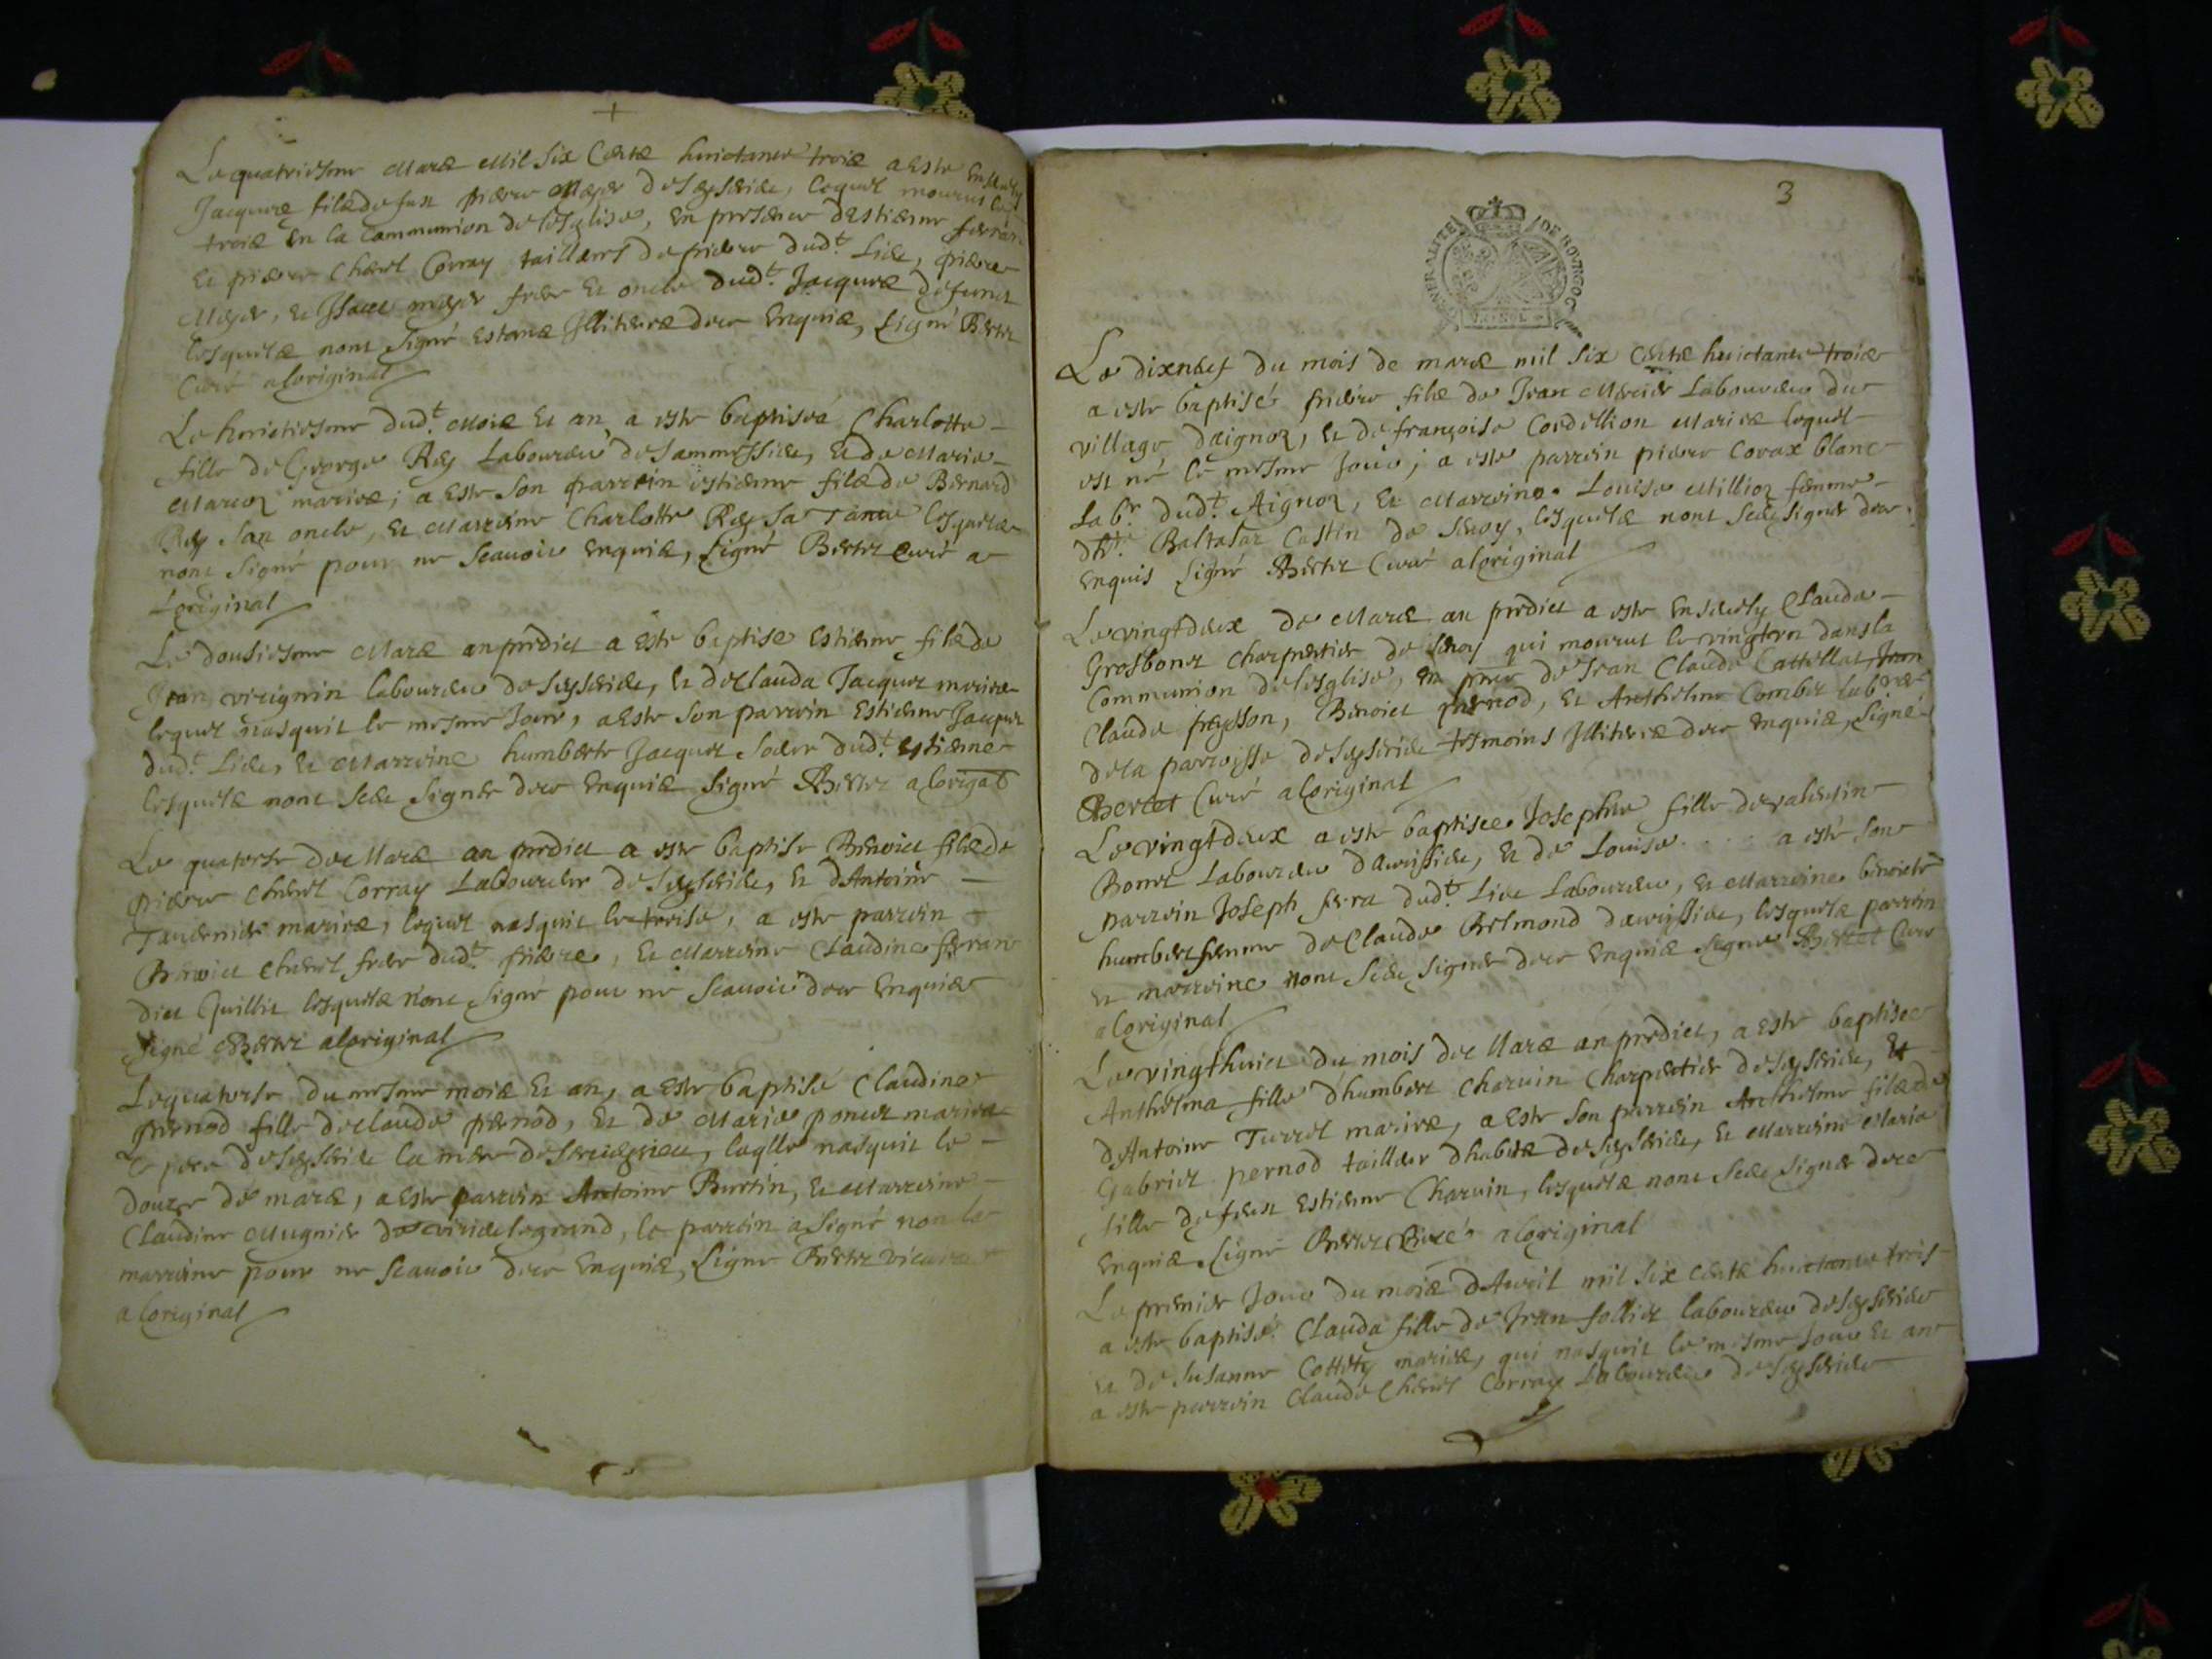 +
Le quatriesme Mars Mil six Cents huictante trois a este Ensevely
Jacques fils de feu pierre Meyer de Seysserieu, lequel mourut le
trois En la Communion de lesglise, En presence destienne ferra
Et pierre Chenel Corray tailleurs de pierre dud.t Lieu, pierre
Meyer, Et Isaac meyer frere Et oncle dud.t Jacques defunct
lesquels nont signé Estants Illiteres de ce Enquis, signé Bertet
Curé a loriginal
Le huictiesme dud.t Mois Et an a este baptiséé Charlotte
fille de George Rey Laboureur de Sammessieu, Et de Marie
Marcoz mariés; a Este son parrein estienne fils de Bernard
Rey son oncle, Et Marreine Charlotte Rey sa Tante lesquels
nont signé pour ne Scauoir Enquis, signé Bertet Curé a
Loriginal
Le dousiesme Mars an predict a Este baptise Estienne fils de
Jean virignin laboureur de Seysserieu, Et de Clauda Jacquet mariés
lequel nasquit le mesme Jour, a Este son parrein Estienne Jacquet
dud.t Lieu, Et Marreine humberte Jacquet soeur dud.t Estienne
lesquels nont sceu signer de ce Enquis signé Bertet a lorigal
Le quatorse de Mars an predict a este baptise Benoict fils de
pierre Chenel Corray Laboureur de Seysserieu, Et dAntoine
Tavernier mariés, lequel nasquit le treise, a este parrein
Benoict Chenel frere dud.t pierre, Et Marreine Claudine ferran
dict Quillet lesquels nont signé pour ne Scauoir de ce Enquis
signé Bertet a loriginal
Le quatorse du mesme mois Et an, a Este baptisé Claudine
pernod fille de Claude pernod, Et de Marie poncet mariés
le pere de Seysserieu la mere de laqlle nasquit le
douze de mars, a Este parrein Antoine Burtin, Et Marreine
Claudine Mugnier de virieu le grand, le parrein a signé non la
marreine pour ne Scauoir de ce Enquis, signe Bertet vicaire
a loriginal
3
GENERALITE DE BOVRGOG
Le dixneuf du mois de mars mil six Cents huictante trois
a este baptisé pierre fils de Jean Mercier Laboureur du
village daignoz, Et de françoise Cordellion Mariés lequel
est né le mesme Jour; a este parrein pierre Corax blanc
Lab.r dud.t Aignoz, Et Marreine Louise Millioz femme
dh.te Baltasar Castin de Seroy, lesquels nont sceu signer de ce
Enquis signé Bertet Curé a loriginal
Le vingt deux de Mars an predict a este Ensevely Claude
Grosbonet charpentier de Seroy qui mourut le vingt un dans la
Communion de lesglise, En pnce de Jean Claude Cattellat, Jean
Claude freysson, Benoict pernod, Et Anthelme Combet lab.rs
de la parroisse de Seysserieu tesmoins Illiteres de ce Enquis, signé
Bertet Curé a loriginal
Le vingt deux a este baptisee Josephte fille de valentin
Bonet Laboureur daurissieu, Et de Louise .... a esté son
parrein Joseph ferra dud.t Lieu Laboureur, Et Marreine benoicte
humbert femme de Claude Belmond daurissieu, lesquels parrein
Et marreine nont sceu signer de ce Enquis signe Bertet Cure
a loriginal
Le vingthuict du mois de Mars an predict, a Este baptisee
Anthelma fille dhumbert Charuin Charpentier de Seysserieu, Et
dAntoine Turrel mariés, a Este son parrein Anthelme fils de
Gabriel pernod tailleur dhabits de Seysserieu, Et Marreine Maria
fille de feu Estienne Charuin, lesquels nont sceu signer de ce
Enquis signe Bertet Curé a loriginal
Le premier Jour du mois dAvril mil six cents huictante trois
a este baptisé Clauda fille de Jean follict laboureur de Seysserieu
et de Susanne Cottety mariés, qui nasquit le mesme Jour Et an
a este parrein Claude Chenel Corray Laboureur de Seysserieu